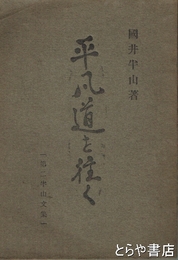 國井半山著
平凡道を往く
―第二半山文集―
とらや書店